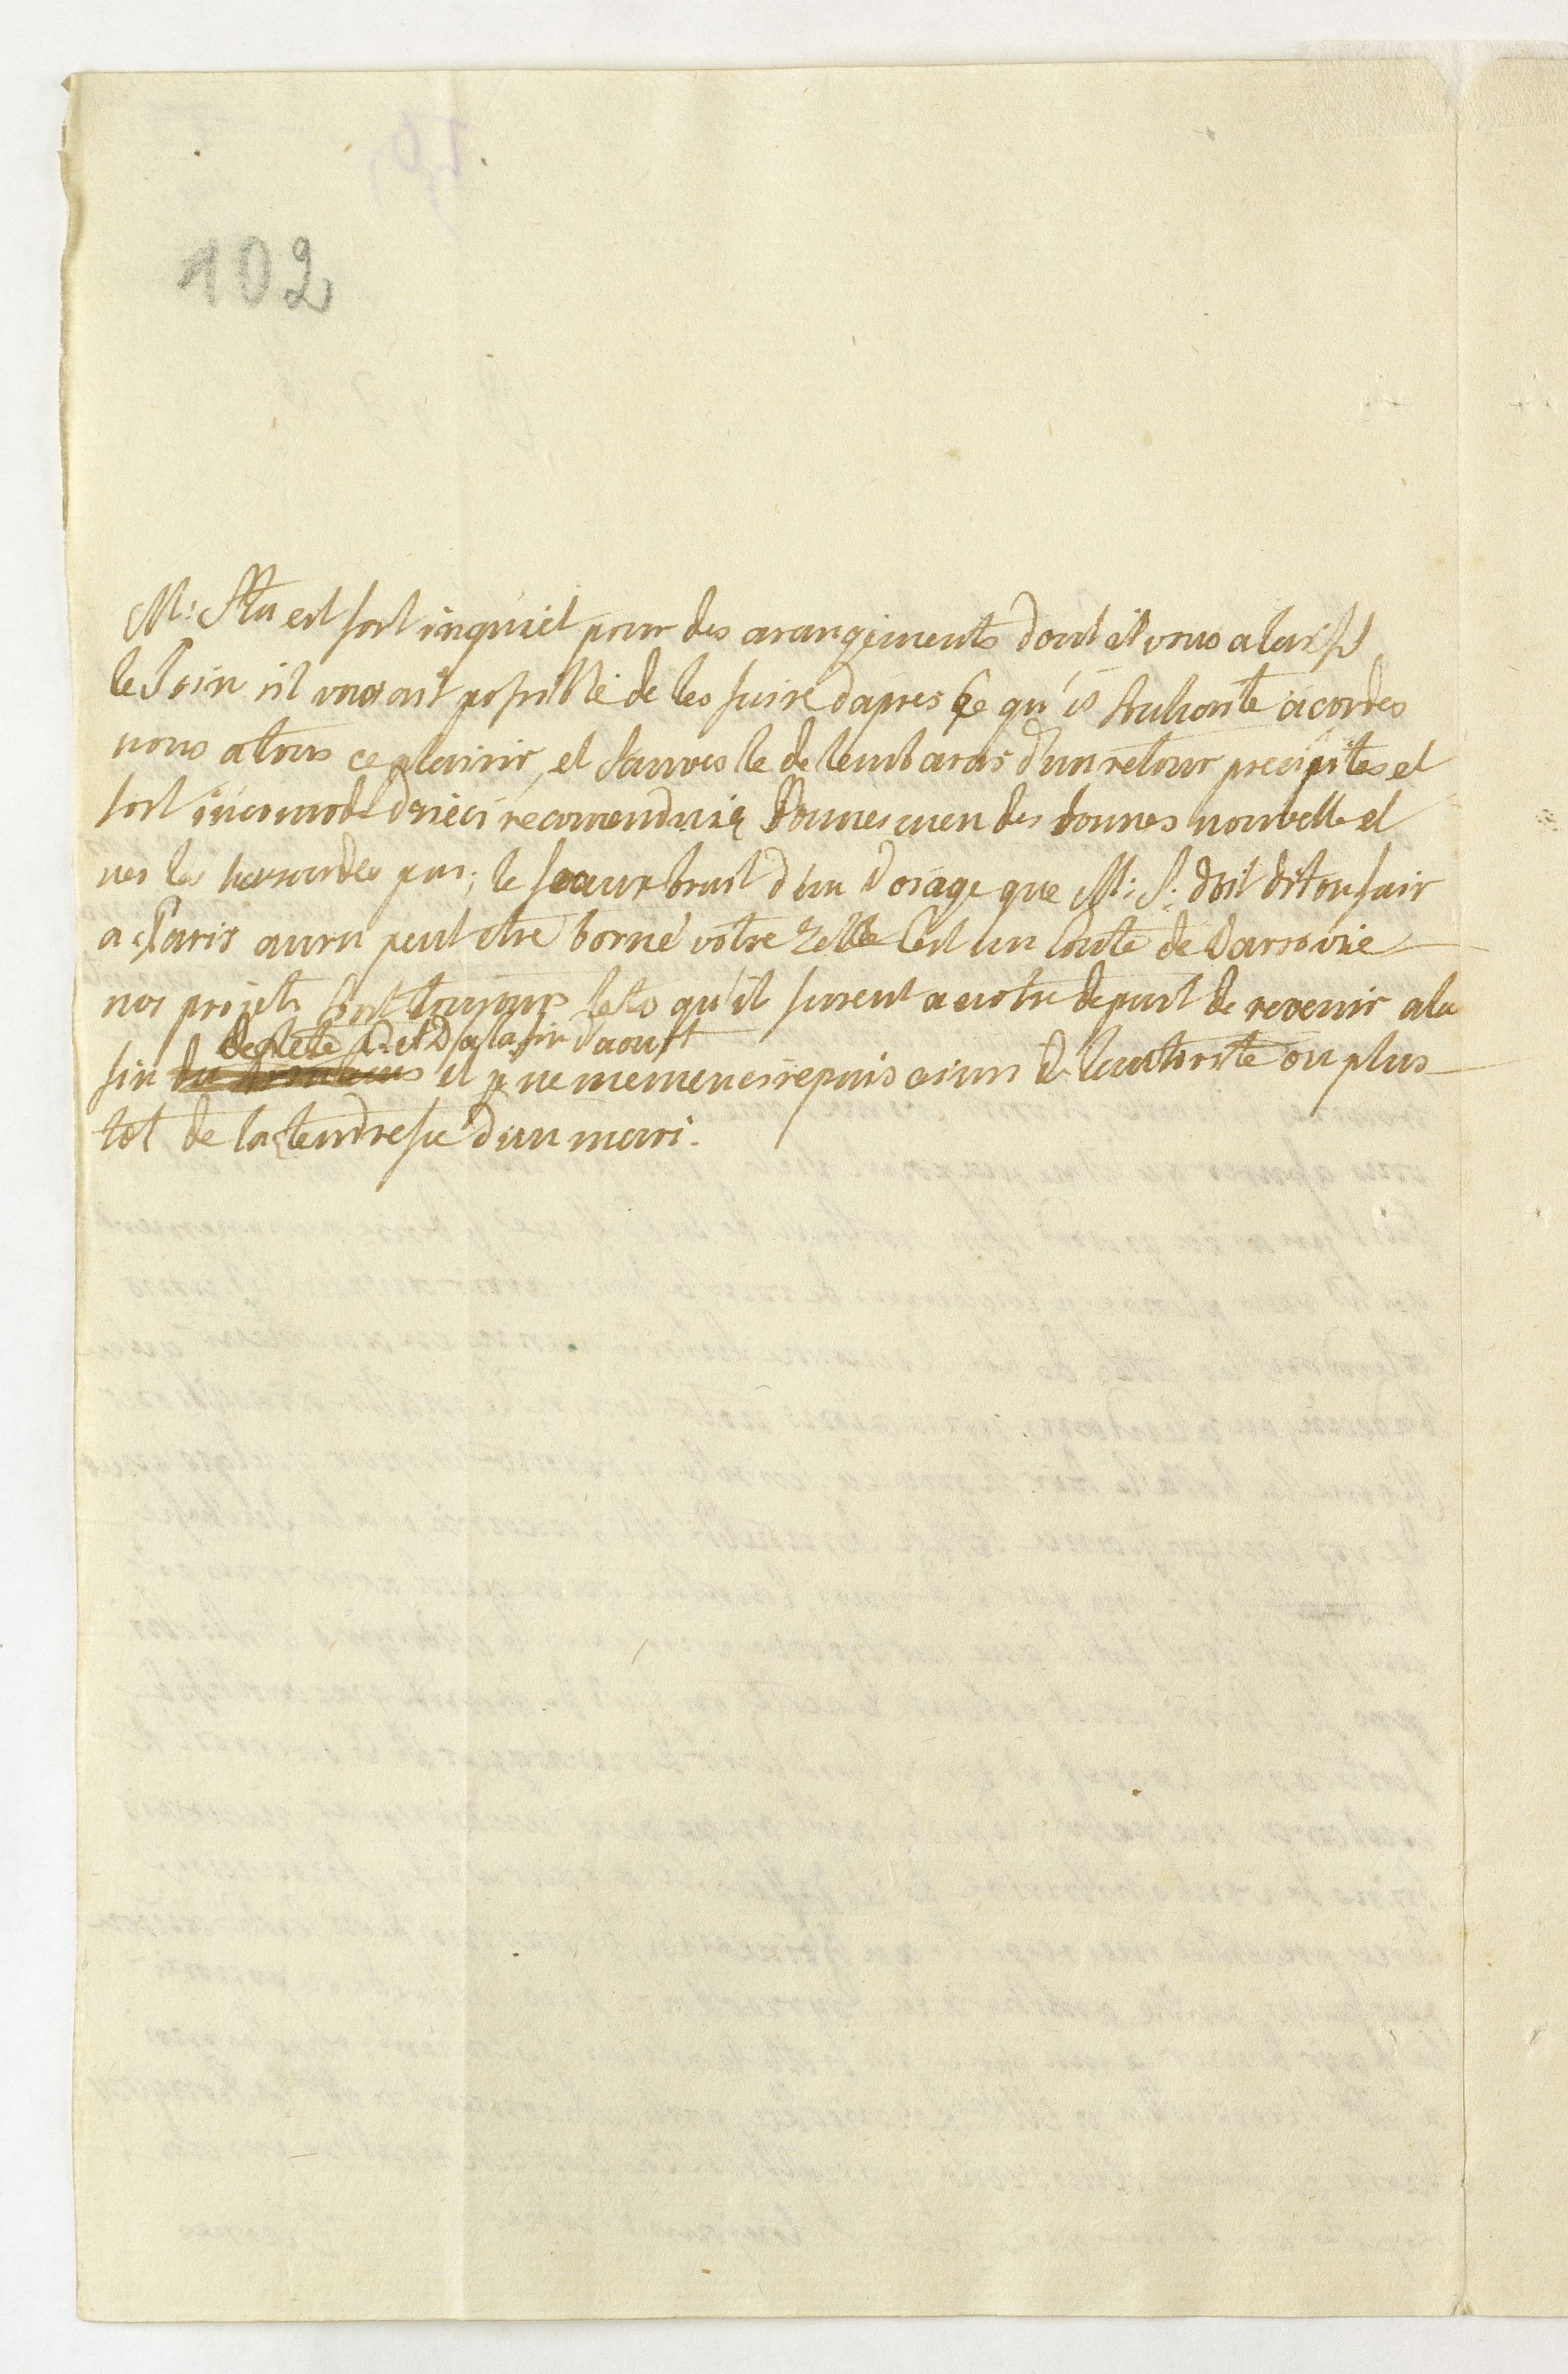 102
M: est fort inquiet pour des arangements dont il vous a laissé
le soin il vous est possible de les faire dapres ce qu'is souhoite acordes
nous a tous ce plaisir, et sauves le de lembaras d'un retour precipites et
fort incomode d'ariers Donnes men des bonnes nouvelle et
nes les pas; le faaux bruit d'un voiage que M: S: doit dit on fair
a Paris aura peut etre borné votre zelle Cest un Conte de Varsovie
nos projets sont toujours tels qu'il furent a votre depart de revenir a la
de l'été c: et D: a la fin d'aoust
fin et je ne de lautorité ou plus
tot de la tendresse d'un mari.